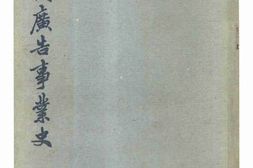 廣告事業史